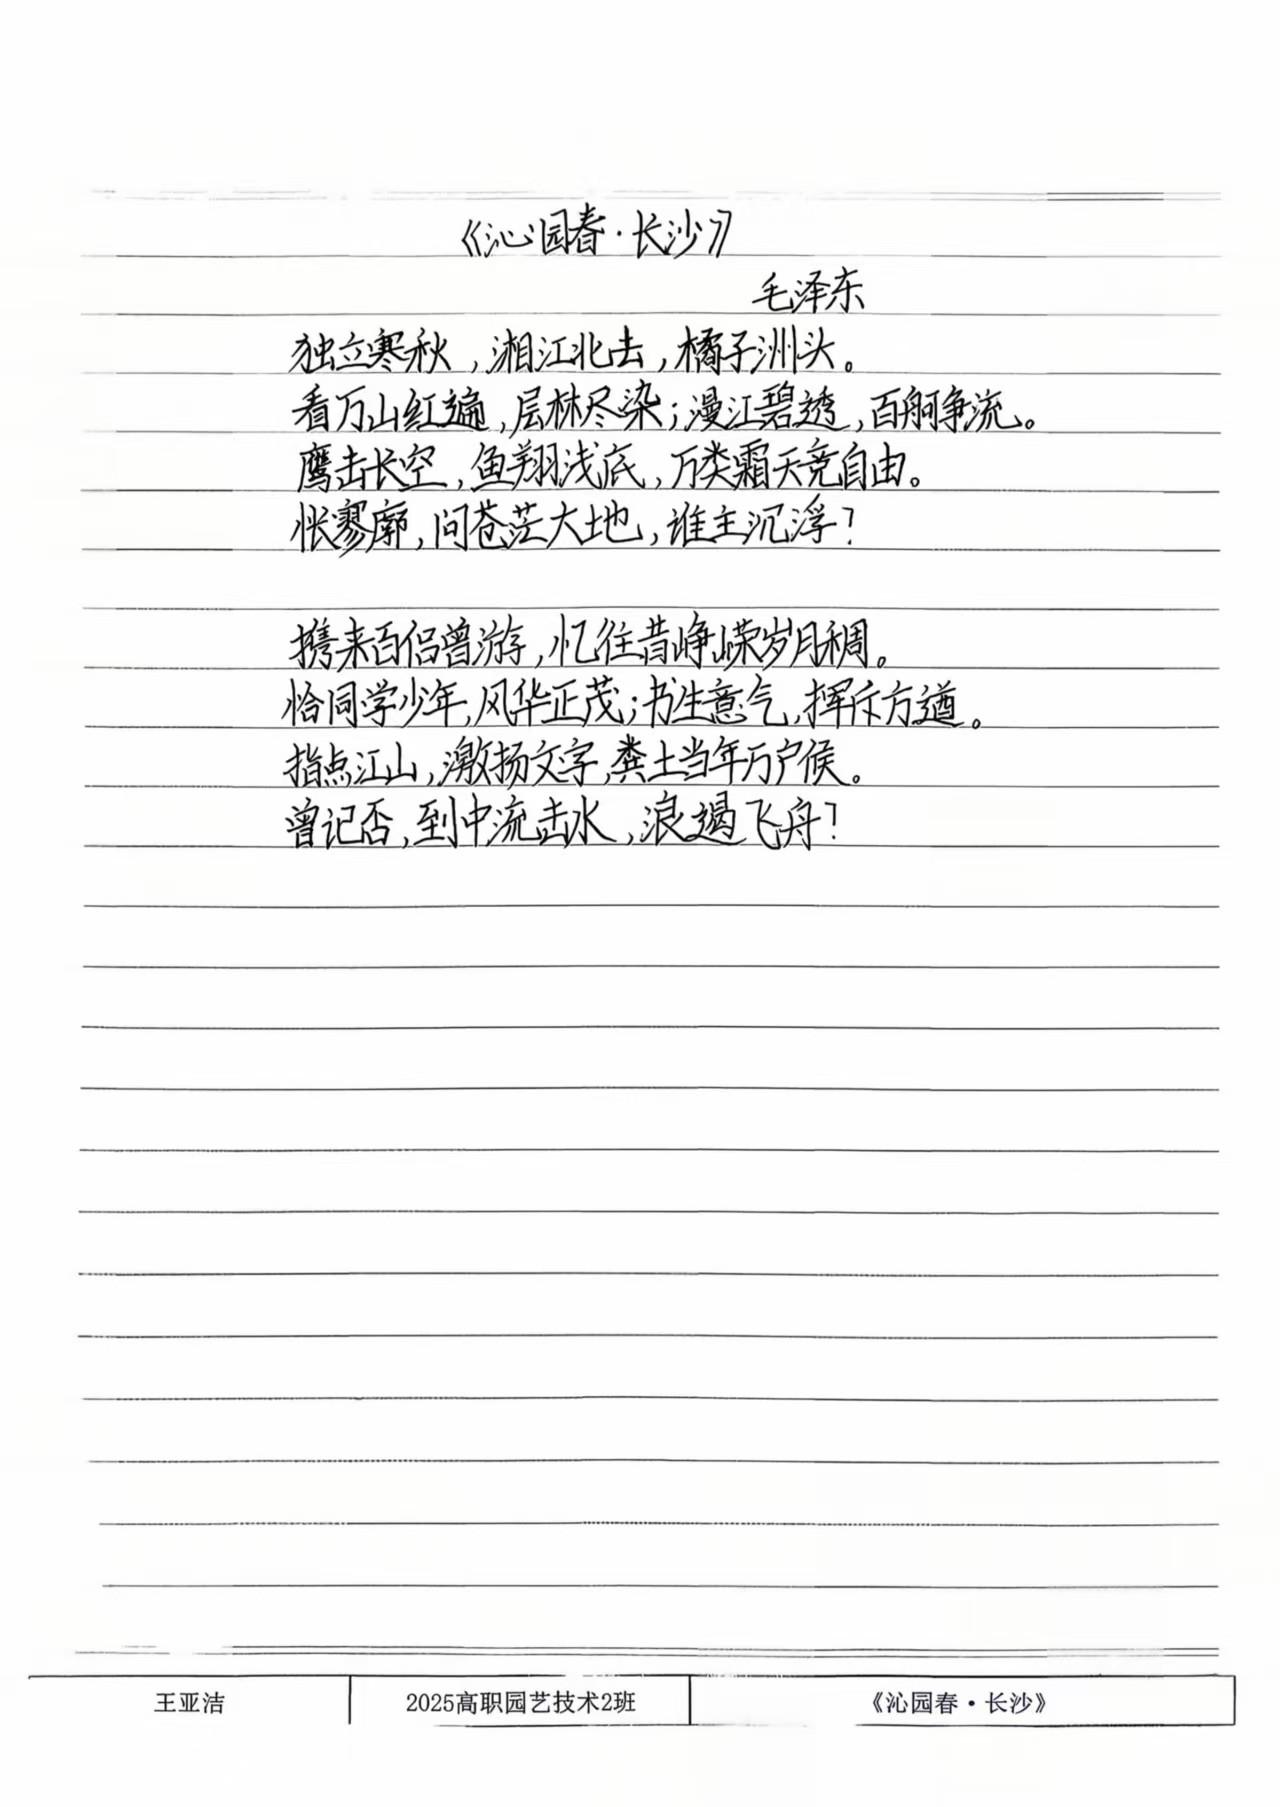 《沁园春·长沙》
毛泽东
独立寒秋，湘江北去，橘子洲头。
看万山红遍，层林尽染；漫江碧透，百舸争流。
鹰击长空，鱼翔浅底，万类霜天竞自由。
怅寥廓，问苍茫大地，谁主沉浮？
携来百侣曾游，忆往昔峥嵘岁月稠。
恰同学少年，风华正茂；书生意气，挥斥方遒。
指点江山，激扬文字，粪土当年万户候。
曾记否，到中流击水，浪遏飞舟？
王亚洁 2025高职园艺技术2班 《沁园春·长沙》